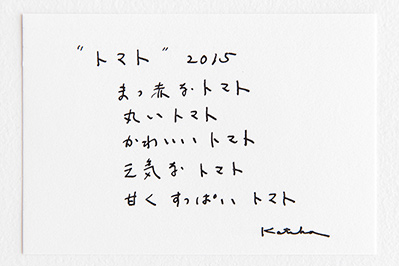 "トマト" 2015
まっ赤なトマト
丸いトマト
かわいいトマト
元気なトマト
甘くすっぱいトマト